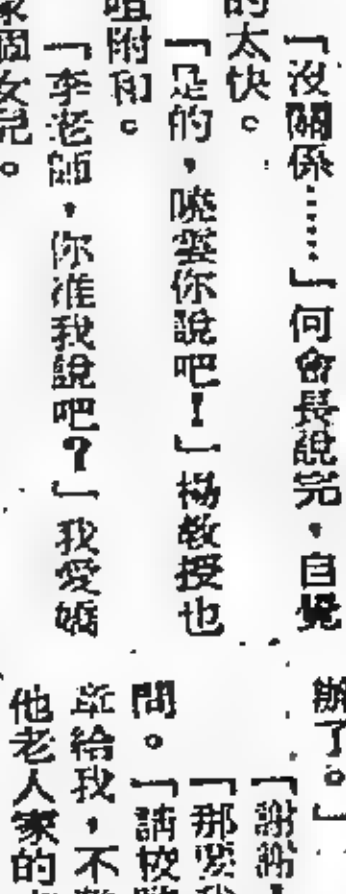 「沒關係……」何會長說完，自覺
的太快。
「是的，曉雲你說吧！」楊教授也
附和。
「李老師，你准我說吧？」我愛嬌
個女兒。
辦了。」
「謝謝
「那
問。「請校
給我，不
他老人家的